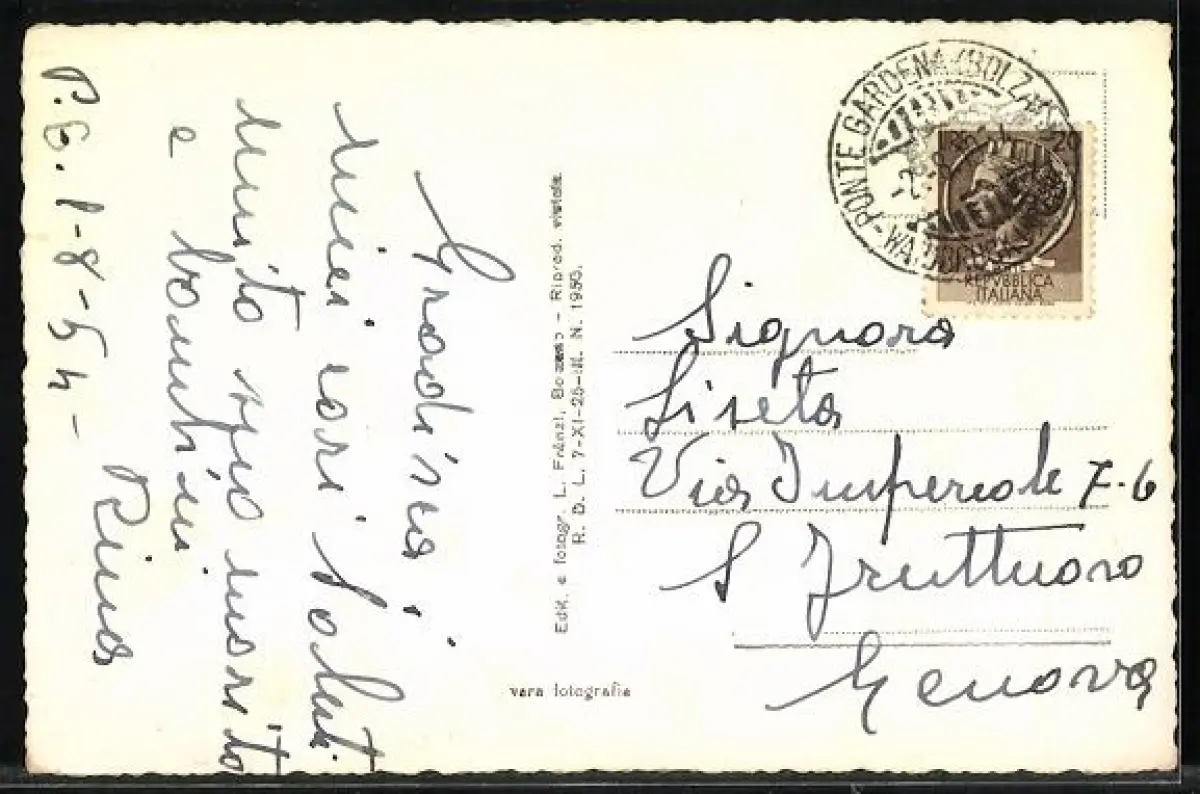 Gradisci i
miei cari saluti
unito tuo marito
e bambini
P.G. 1-8-54- Rina
Edit. e fotogr. L. Fränzl, Bolzano - Riprod. vietata.
R. D. L. 7-XI-25-III. N. 1950.
vera fotografia
PONTE GARDENA (BOLZANO)
20
REPVBBLICA
ITALIANA
Signora
Liseta
Via Imperiale 7-6
S Fruttuoso
Genova